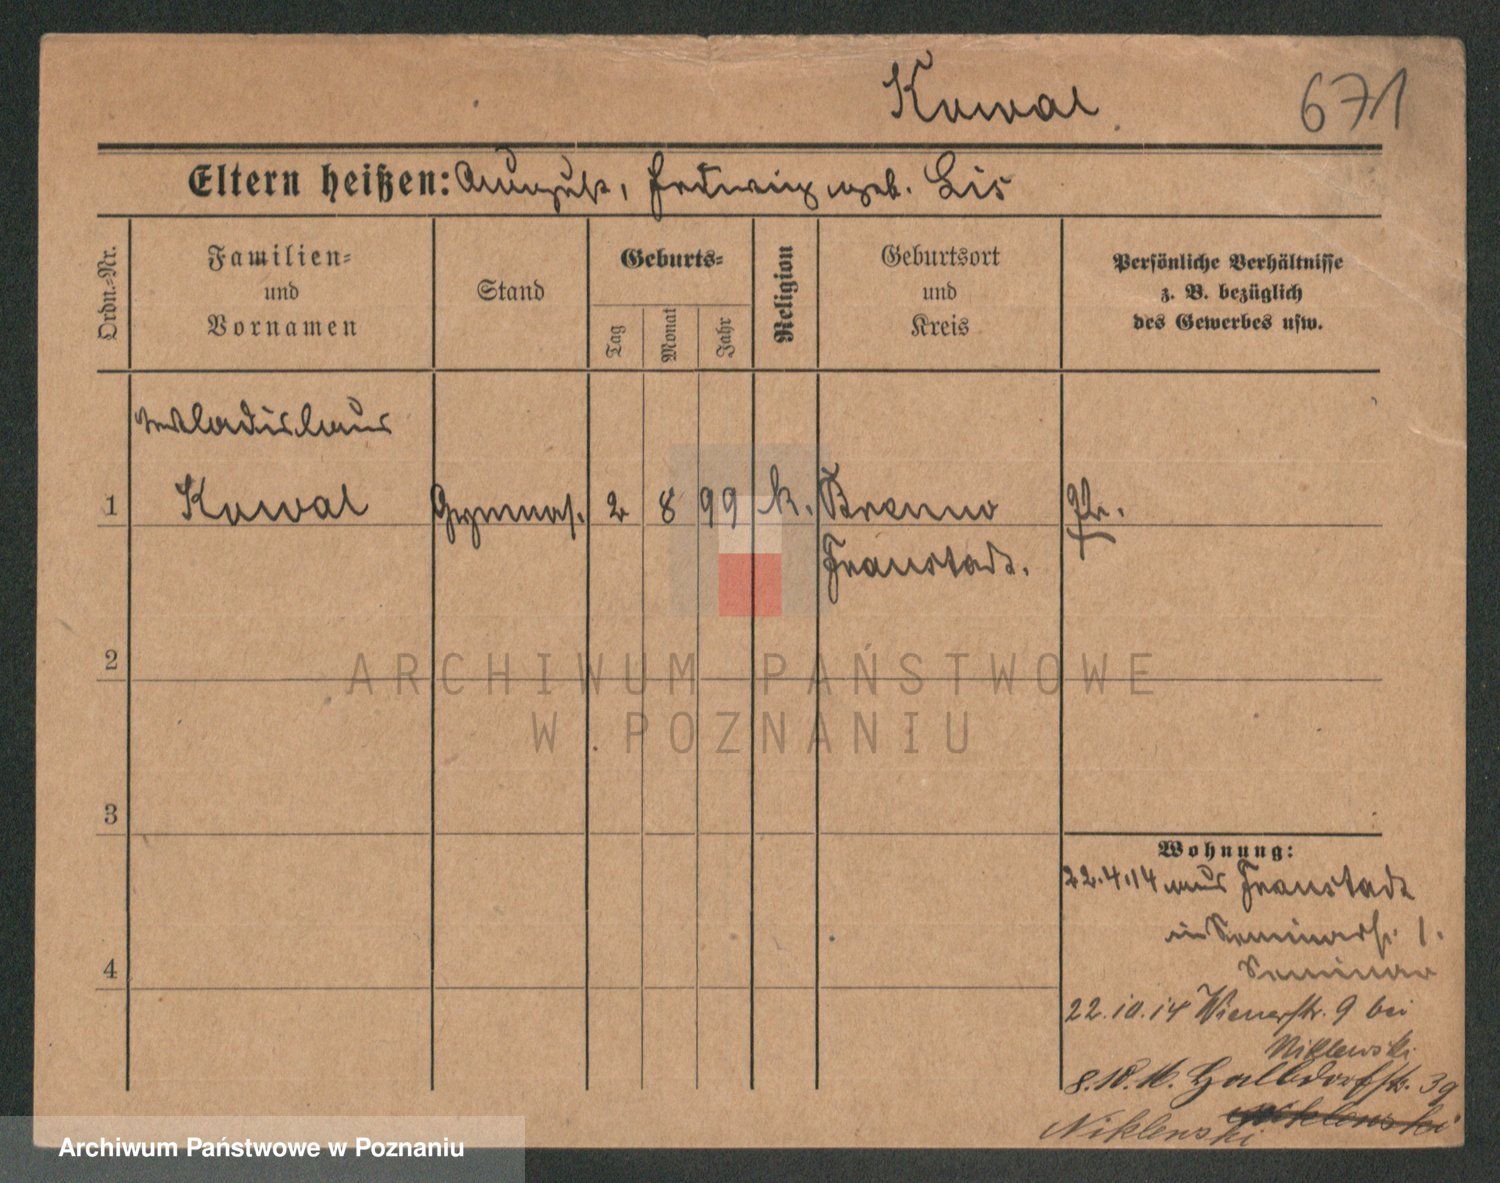 Kowal
671
Eltern heißen: August, Hedwig geb. Lis
Ordn.-Nr.
Familien-
und
Vornamen
Stand
Geburts-
Tag
Monat
Jahr
Religion
Geburtsort
und
Kreis
Persönliche Verhältnisse
z. B. bezüglich
des Gewerbes usw.
Wladislaus
1 Kowal Gymnas. 2 8 99 k. Brenno
Fraustadt.
2
3
4
ARCHIWUM PAŃSTWOWE
W POZNANIU
Wohnung:
22.4.14 aus Fraustadt
in Seminarstr. 1.
Seminar
22.10.14 Wienerstr. 9 bei
Niklewski
8.10.16. Halbdorfstr. 39
Niklewski
Niklewski
Archiwum Państwowe w Poznaniu